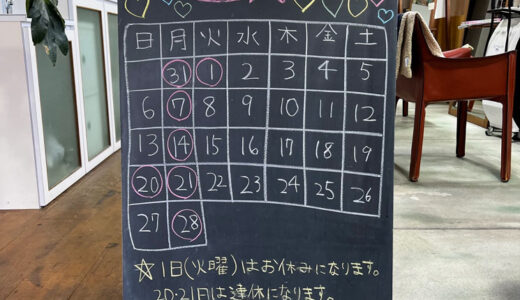 日 月 火 水 木 金 土
31 1 2 3 4 5
6 7 8 9 10 11 12
13 14 15 16 17 18 19
20 21 22 23 24 25 26
27 28
☆1日(火曜)はお休みになります。
20・21日は連休になります。